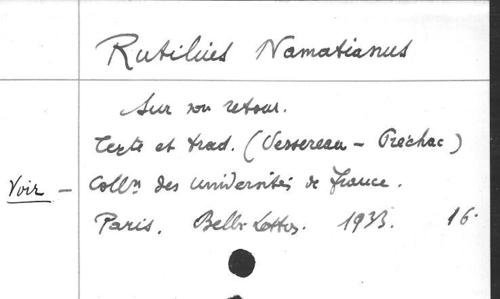 Rutilius Namatianus
Sur son retour.
Texte et trad. (Vessereau - Préchac)
Voir - Colln des Universités de France.
Paris. Belles Lettres. 1933. 16.